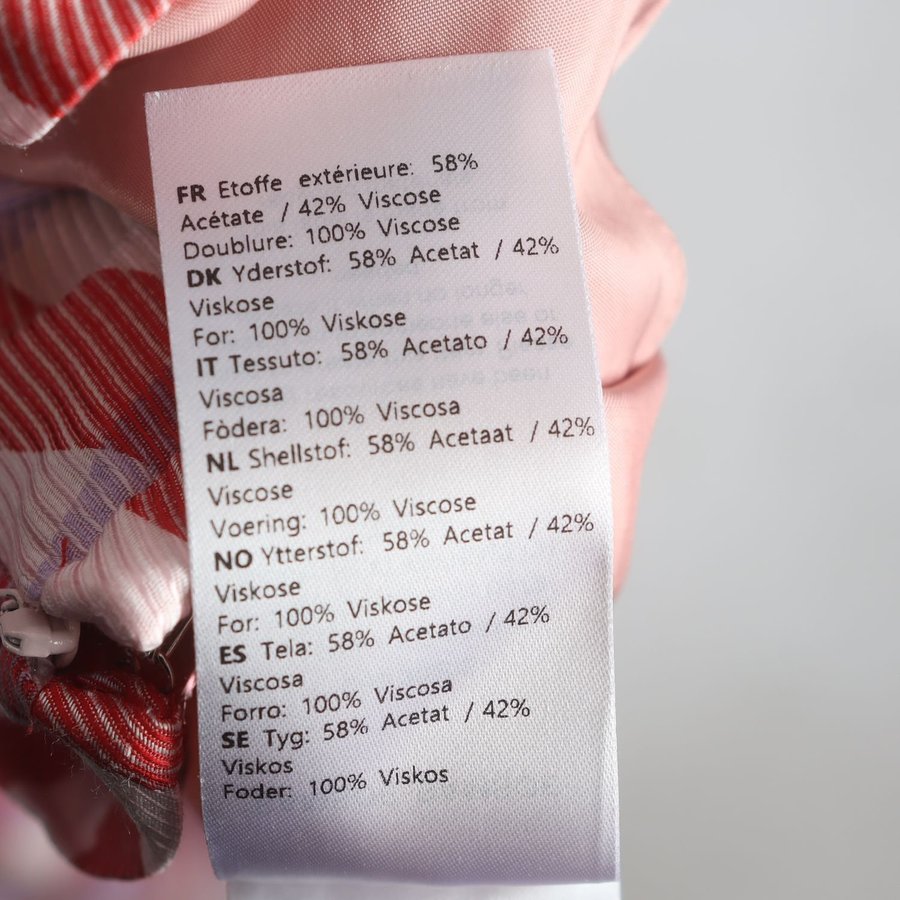 FR Etoffe extérieure: 58%
Acétate / 42% Viscose
Doublure: 100% Viscose
DK Yderstof: 58% Acetat / 42%
Viskose
For: 100% Viskose
IT Tessuto: 58% Acetato / 42%
Viscosa
Fòdera: 100% Viscosa
NL Shellstof: 58% Acetaat / 42%
Viscose
Voering: 100% Viscose
NO Ytterstof: 58% Acetat / 42%
Viskose
For: 100% Viskose
ES Tela: 58% Acetato / 42%
Viscosa
Forro: 100% Viscosa
SE Tyg: 58% Acetat / 42%
Viskos
Foder: 100% Viskos